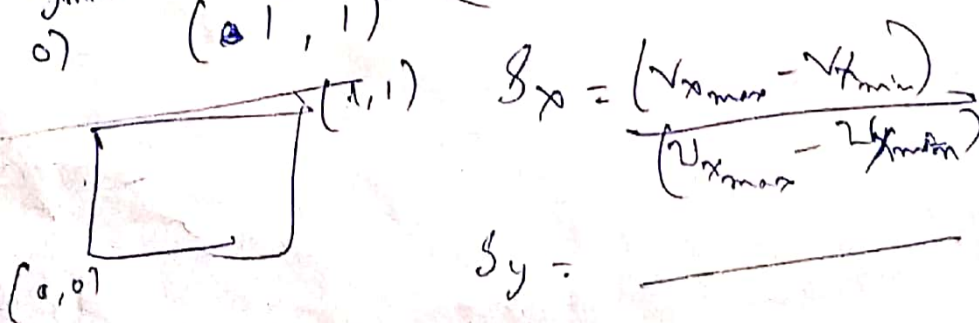 0) (1, 1)
(1, 1)
Sx = (Vxmax - Vxmin)
(Vxmax - Vxmin)
(0, 0)
Sy =